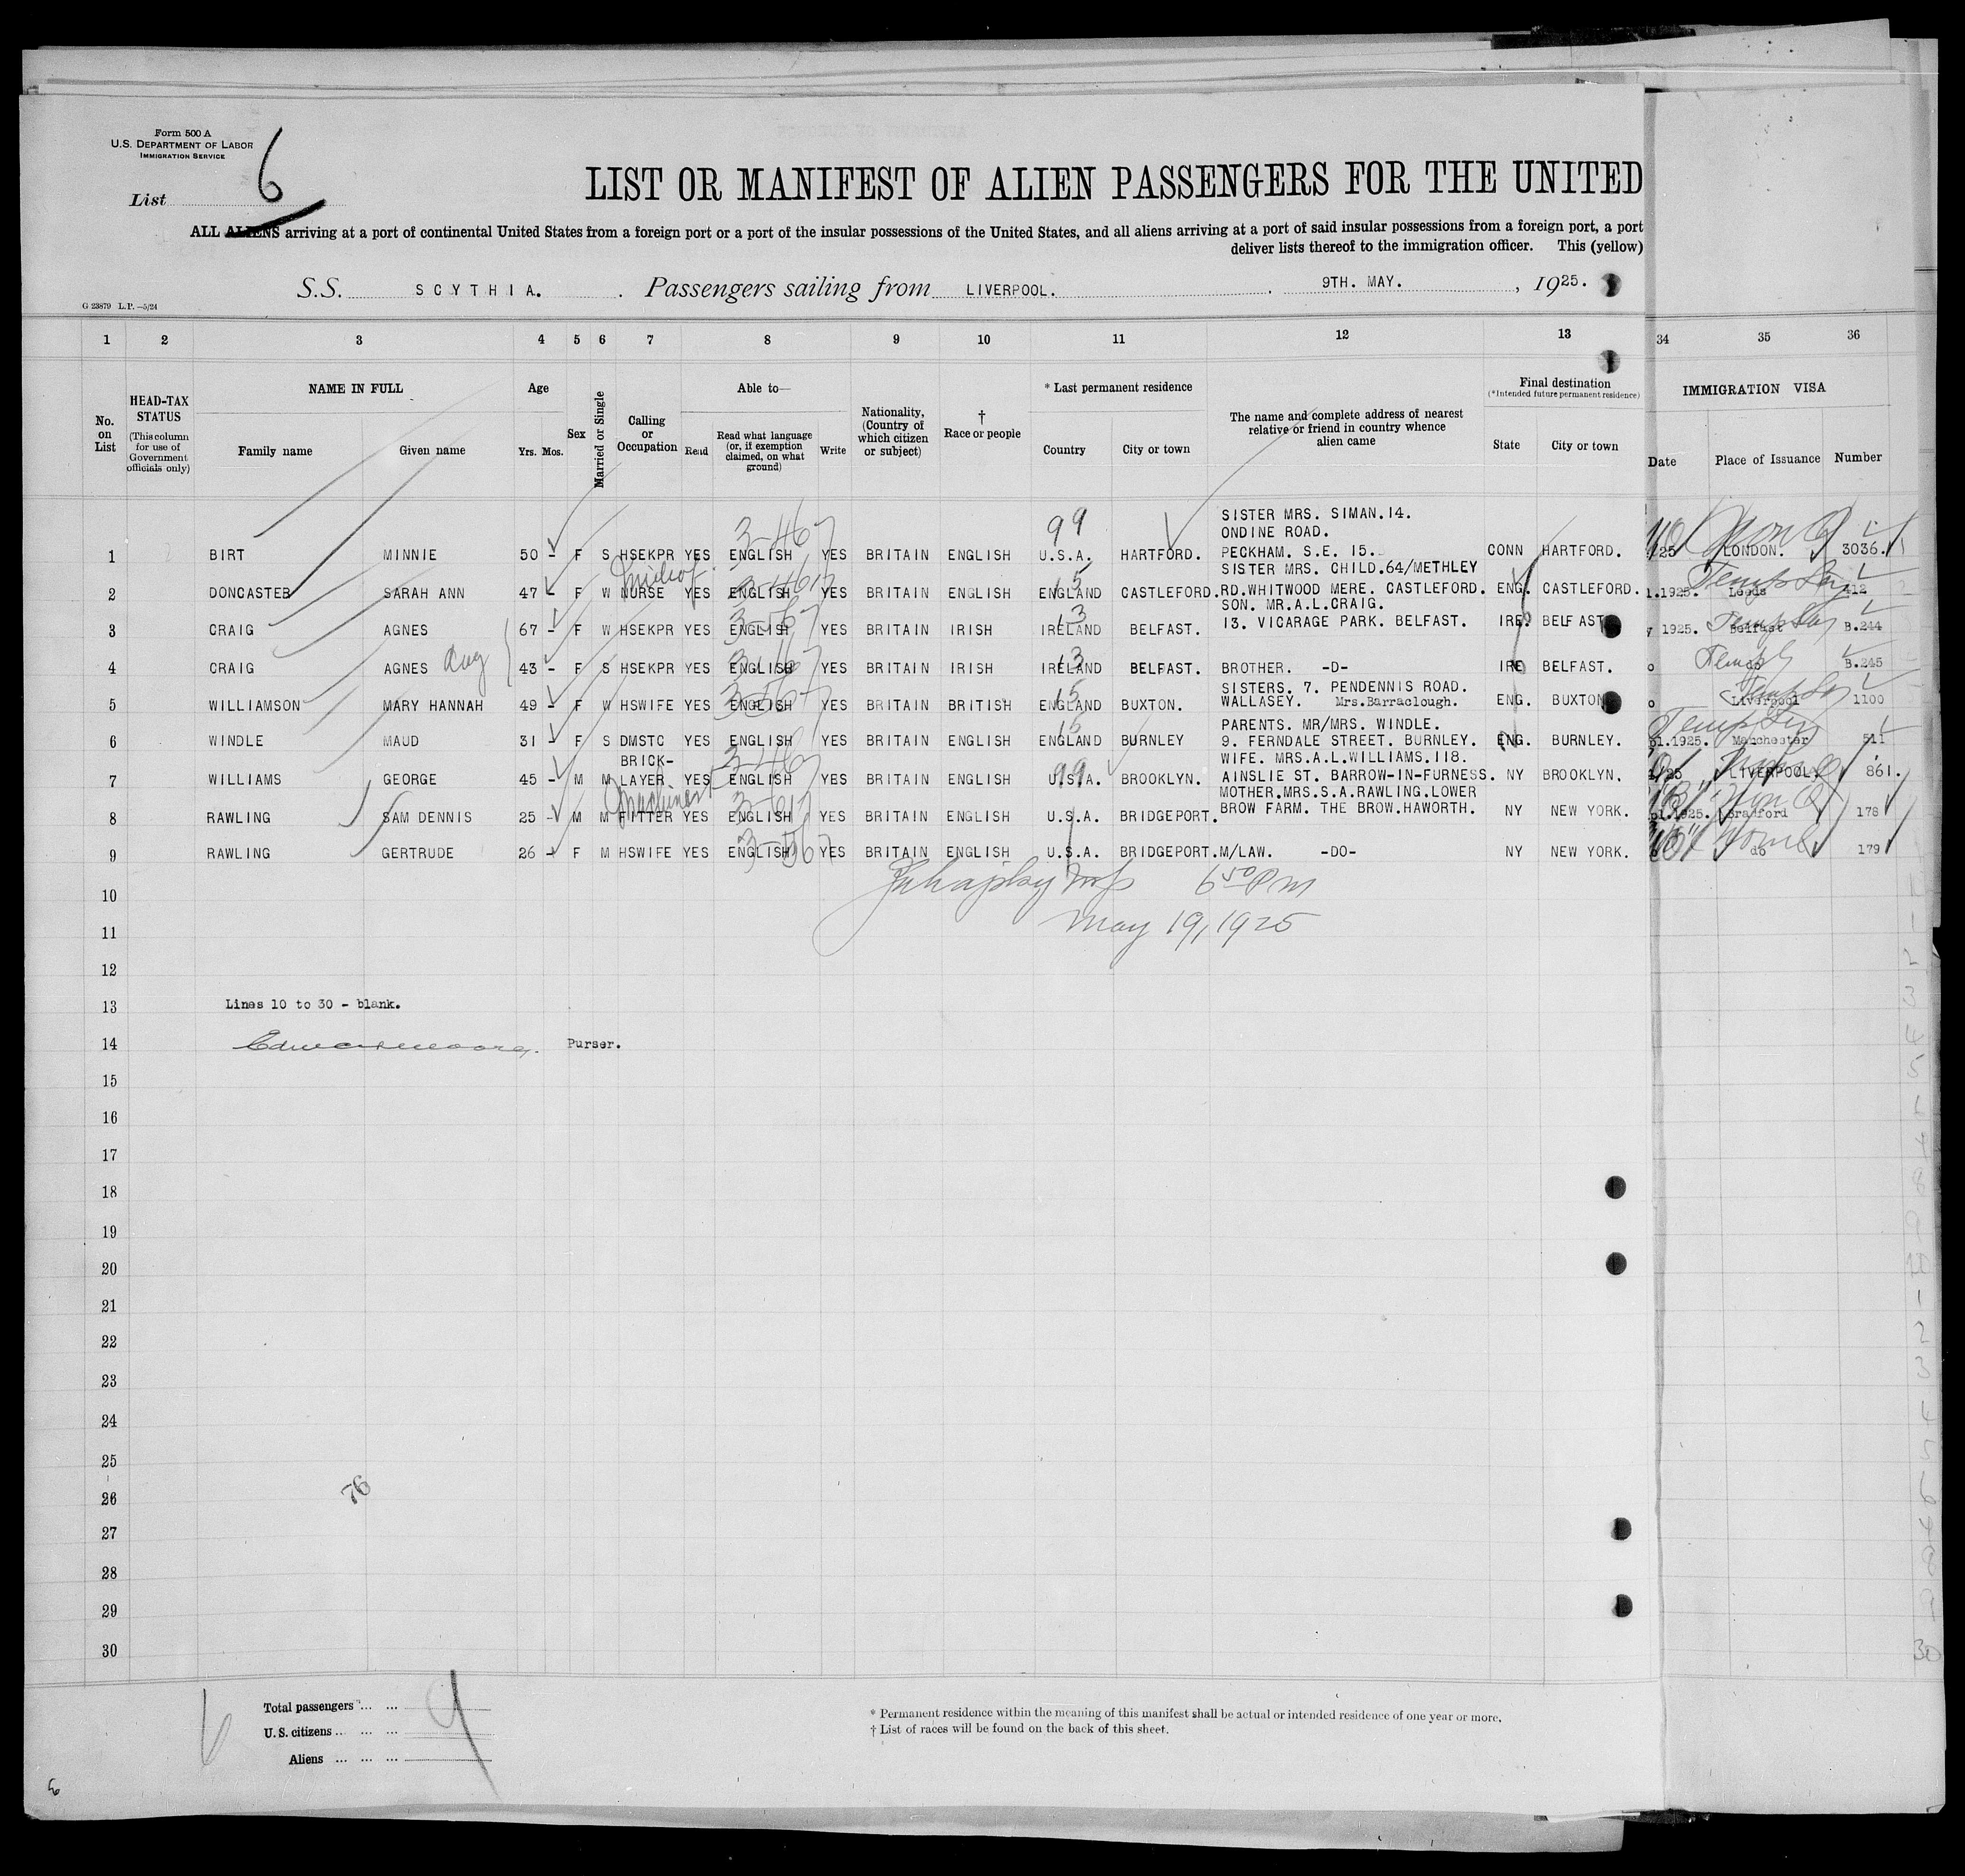 Form 500 A
U.S. DEPARTMENT OF LABOR
IMMIGRATION SERVICE
List 6
LIST OR MANIFEST OF ALIEN PASSENGERS FOR THE UNITED
ALL ALIENS arriving at a port of continental United States from a foreign port or a port of the insular possessions of the United States, and all aliens arriving at a port of said insular possessions from a foreign port, a port
deliver lists thereof to the immigration officer. This (yellow)
S.S. SCYTHIA. Passengers sailing from LIVERPOOL. 9TH. MAY. , 1925.
G 23879 L.P.—5/24
1 2 3 4 5 6 7 8 9 10 11 12 13 34 35 36
No. on List
HEAD-TAX STATUS (This column for use of Government officials only)
NAME IN FULL
Family name Given name
Age
Yrs. Mos.
Sex
Married or Single
Calling or Occupation
Able to—
Read Read what language (or, if exemption claimed, on what ground) Write
Nationality, (Country of which citizen or subject)
† Race or people
* Last permanent residence
Country City or town
The name and complete address of nearest relative or friend in country whence alien came
Final destination
(*Intended future permanent residence)
State City or town
IMMIGRATION VISA
Date Place of Issuance Number
SISTER MRS. SIMAN.14.
ONDINE ROAD.
3-467 99
1 BIRT MINNIE 50 - F S HSEKPR YES ENGLISH YES BRITAIN ENGLISH U.S.A. HARTFORD. PECKHAM. S.E. 15. CONN HARTFORD. 25 LONDON. 3036.
SISTER MRS. CHILD.64/METHLEY
2 DONCASTER SARAH ANN 47 - F W NURSE YES ENGLISH YES BRITAIN ENGLISH ENGLAND CASTLEFORD. RD.WHITWOOD MERE. CASTLEFORD. ENG. CASTLEFORD. 1.1925. Leeds 412
SON. MR.A.L.CRAIG.
3 CRAIG AGNES 67 - F W HSEKPR YES ENGLISH YES BRITAIN IRISH IRELAND BELFAST. 13. VICARAGE PARK. BELFAST. IRE. BELFAST y 1925. Belfast B.244
4 CRAIG AGNES 43 - F S HSEKPR YES ENGLISH YES BRITAIN IRISH IRELAND BELFAST. BROTHER. -D- IRE BELFAST. o do B.245
SISTERS. 7. PENDENNIS ROAD.
5 WILLIAMSON MARY HANNAH 49 - F W HSWIFE YES ENGLISH YES BRITAIN BRITISH ENGLAND BUXTON. WALLASEY. Mrs.Barraclough. ENG. BUXTON o Liverpool 1100
PARENTS. MR/MRS. WINDLE.
6 WINDLE MAUD 31 - F S DMSTC YES ENGLISH YES BRITAIN ENGLISH ENGLAND BURNLEY 9. FERNDALE STREET. BURNLEY. ENG. BURNLEY. pl.1925. Manchester 511
BRICK- WIFE. MRS.A.L.WILLIAMS.118.
7 WILLIAMS GEORGE 45 - M M LAYER YES ENGLISH YES BRITAIN ENGLISH U.S.A. BROOKLYN. AINSLIE ST. BARROW-IN-FURNESS. NY BROOKLYN. 25 LIVERPOOL. 861.
Machinist MOTHER.MRS.S.A.RAWLING.LOWER
8 RAWLING SAM DENNIS 25 - M M FITTER YES ENGLISH YES BRITAIN ENGLISH U.S.A. BRIDGEPORT. BROW FARM. THE BROW.HAWORTH. NY NEW YORK. pl.1925. Bradford 178
9 RAWLING GERTRUDE 26 - F M HSWIFE YES ENGLISH YES BRITAIN ENGLISH U.S.A. BRIDGEPORT. M/LAW. -DO- NY NEW YORK. do 179
10 6 50 PM
11 May 19, 1925
12
13 Lines 10 to 30 - blank.
14 Purser.
15
16
17
18
19
20
21
22
23
24
25
26 76
27
28
29
30 30
Total passengers ... ... 9
U.S. citizens ... ... ...
Aliens ... ... ...
* Permanent residence within the meaning of this manifest shall be actual or intended residence of one year or more.
† List of races will be found on the back of this sheet.